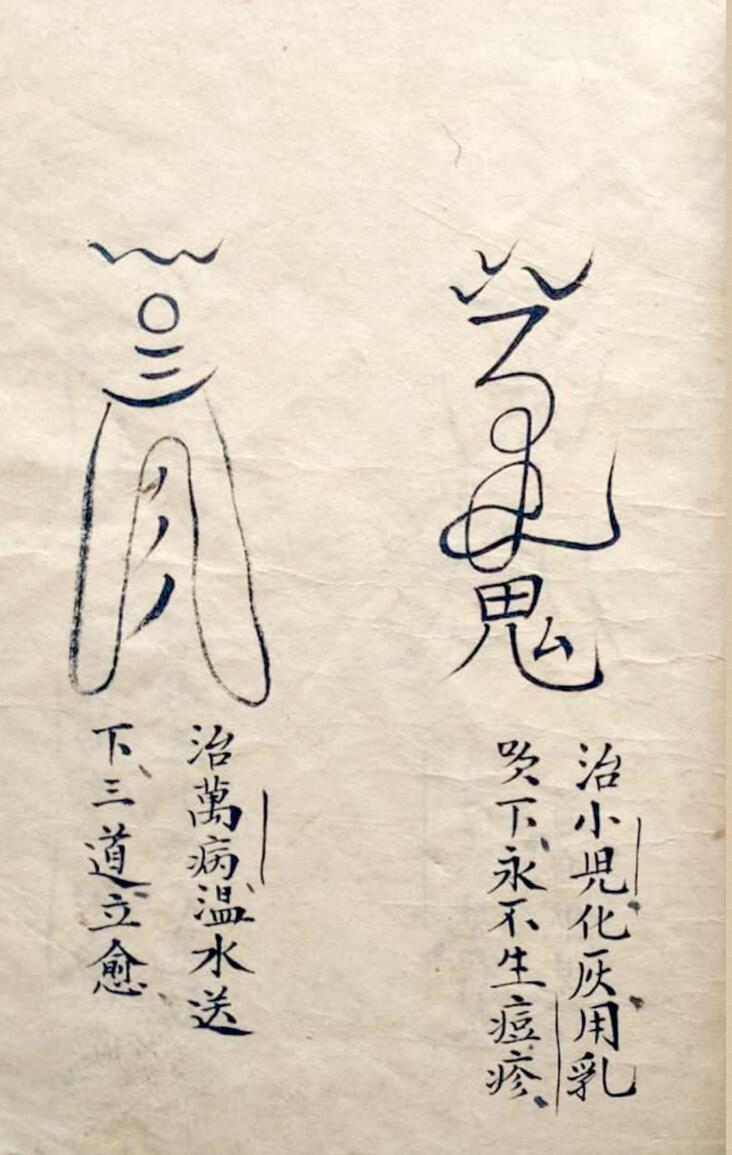 鬼
治小児化灰用乳
吹下永不生痘疹
治萬病温水送
下三道立愈